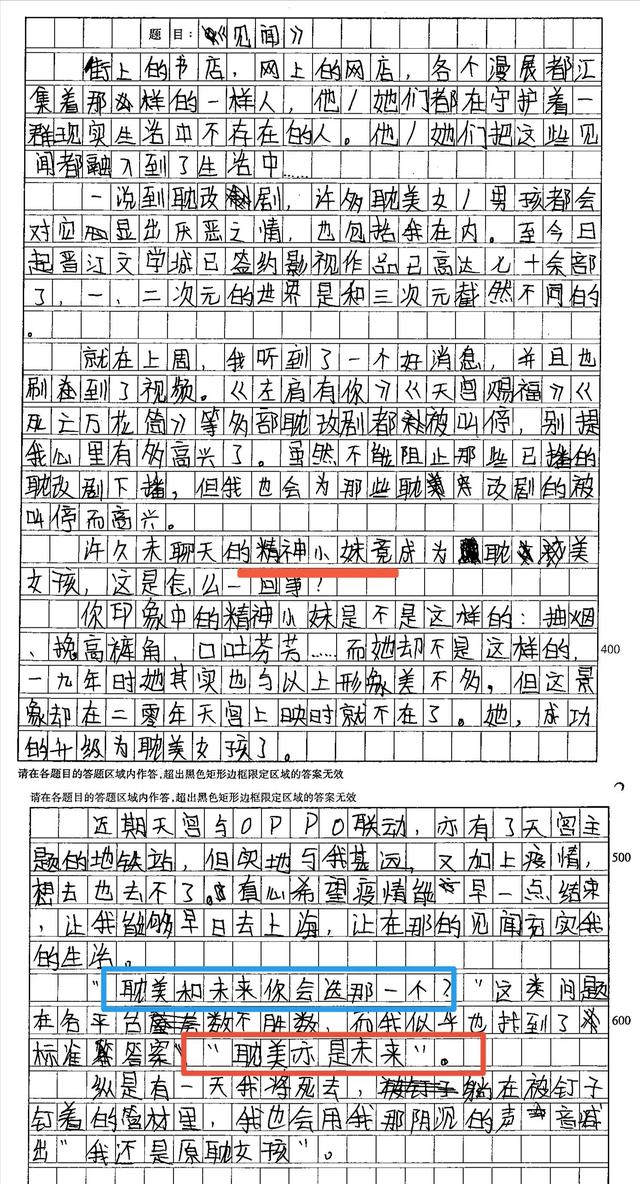 题目：《见闻》
街上的书店，网上的网店，各个漫展都汇
集着那么样的一样人，他/她们都在守护着一
群现实生活中不存在的人。他/她们把这些见
闻都融入到了生活中……
一说到耽改剧，许多耽美女/男孩都会
对应显出厌恶之情，也包括我在内。至今日
起晋江文学城已签约影视作品已高达七十余部
了，一、二次元的世界是和三次元截然不同的
。
就在上周，我听到了一个好消息，并且也
刷到了视频。《左肩有你》《天官赐福》《
死亡万花筒》等多部耽改剧都被叫停，别提
我心里有多高兴了。虽然不能阻止那些已播的
耽改剧下播，但我也会为那些耽改剧的被
叫停而高兴。
许久未聊天的精神小妹竟成为耽美
女孩，这是怎么一回事？
你印象中的精神小妹是不是这样的：抽烟
、挽高裤角，口吐芬芳……而她却不是这样的，
400
一九年时她其实也与以上形象差不多。但这景
象却在二零年天官上映时就不在了。她，成功
的升级为耽美女孩了。
请在各题目的答题区域内作答，超出黑色矩形边框限定区域的答案无效
2
请在各题目的答题区域内作答，超出黑色矩形边框限定区域的答案无效
近期天官与OPPO联动，亦有了天官主
题的地铁站，但实地与我甚远，又加上疫情，
500
想去也去不了。真心希望疫情能早一点结束
，让我能够早日去上海，让在那的见闻充实我
的生活。
"耽美和未来你会选那一个？"这类问题
在各平台数不胜数，而我似乎也找到了
600
标准答案"耽美亦是未来"。
纵是有一天我将死去，躺在被钉子
钉着的棺材里，我也会用我那阴沉的声音喊
出"我还是原耽女孩"。